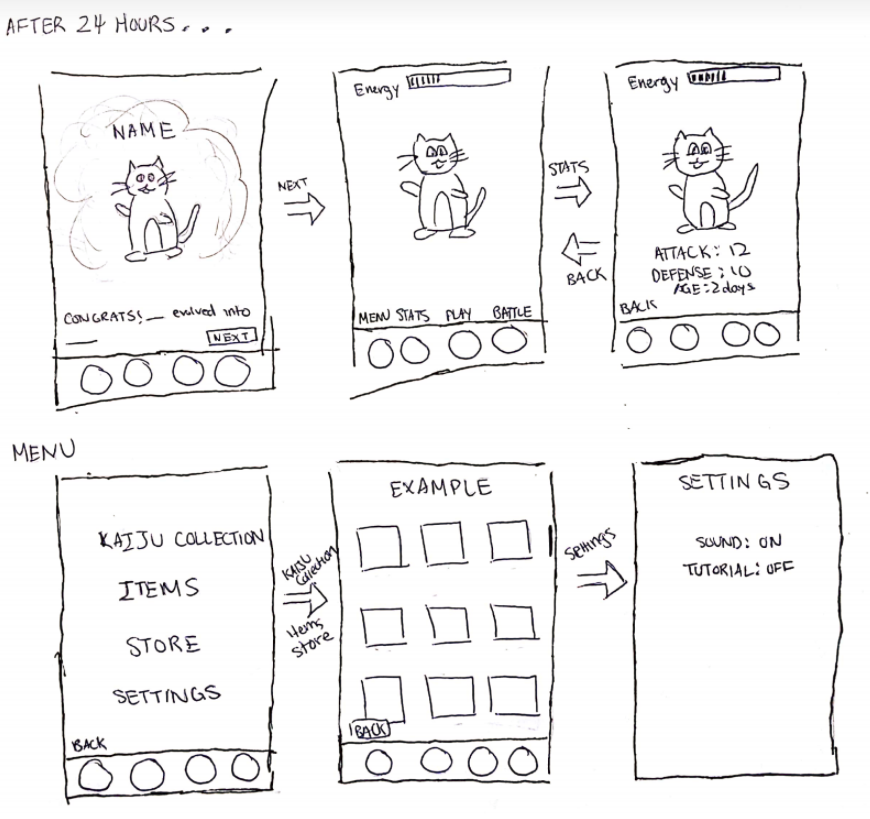 AFTER 24 HOURS...
NAME
CONGRATS! __ evolved into
__
NEXT
NEXT
Energy
MENU STATS PLAY BATTLE
STATS
BACK
Energy
ATTACK: 12
DEFENSE: 10
AGE: 2 days
BACK
MENU
KAIJU COLLECTION
ITEMS
STORE
SETTINGS
BACK
KAIJU
Collection
Items
Store
EXAMPLE
BACK
Settings
SETTINGS
SOUND: ON
TUTORIAL: OFF